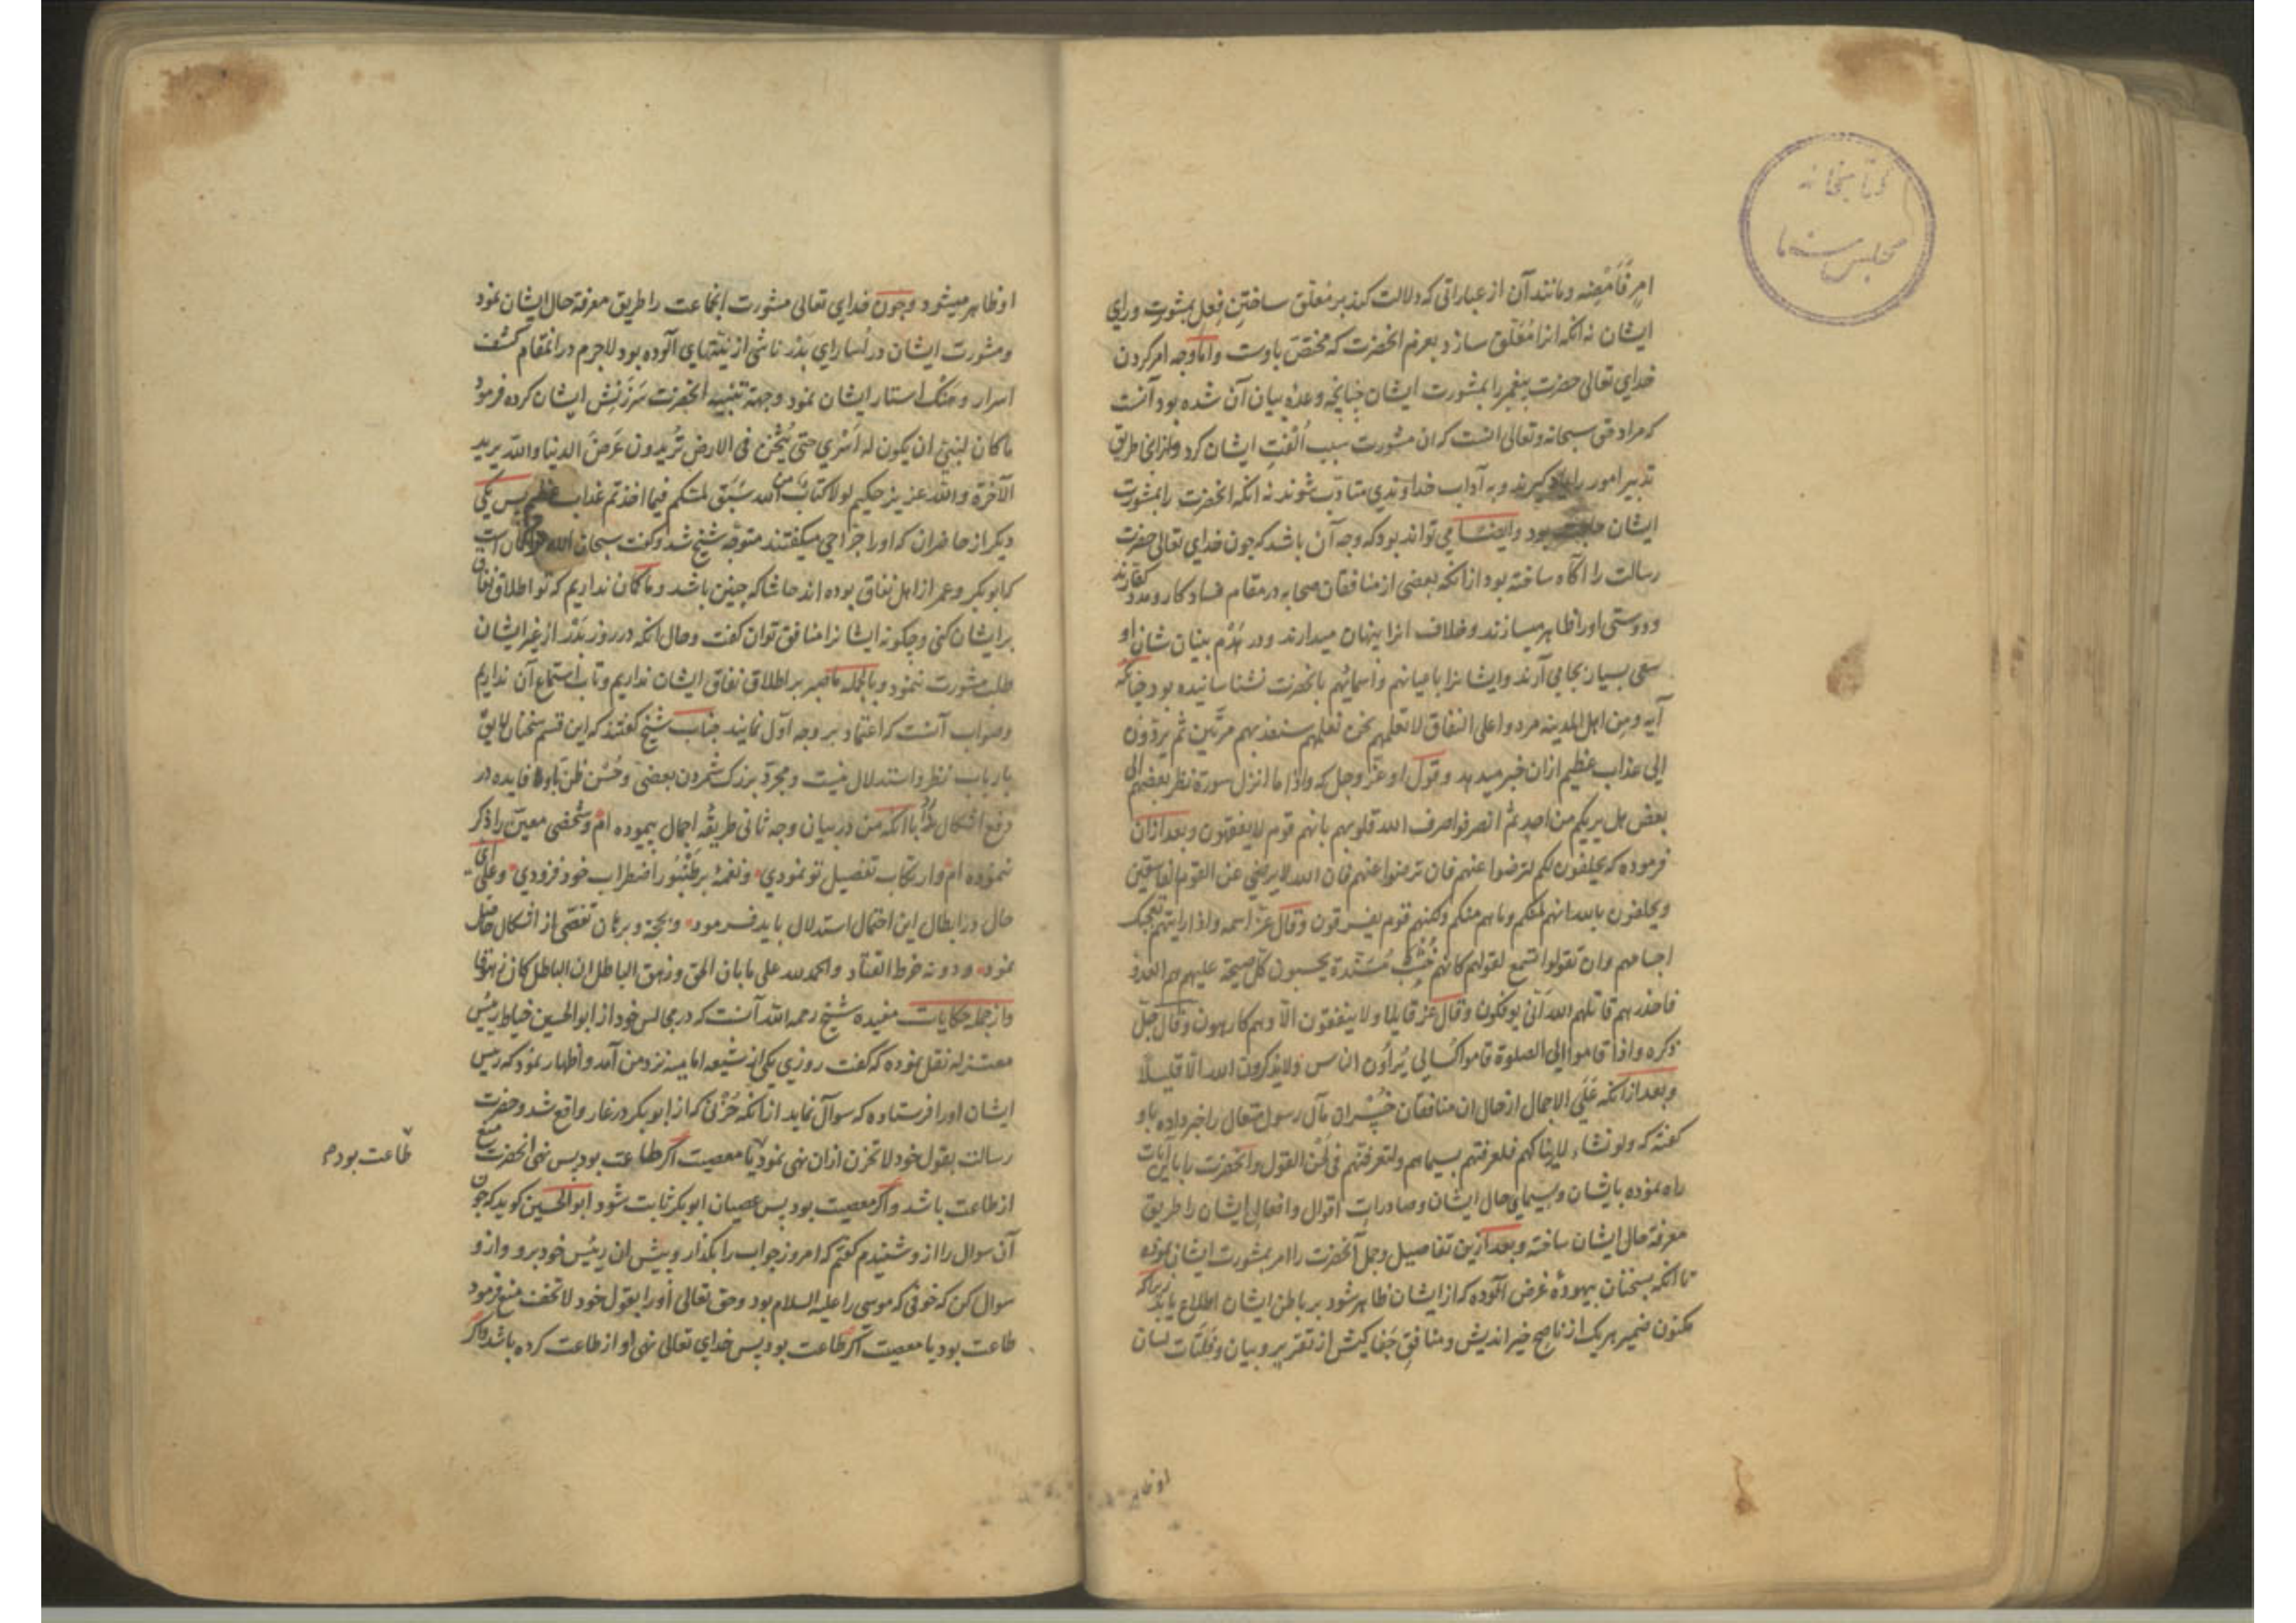 کتابخانه
مجلس
امر فَاَمْضِه ومانند آن از عباراتی که دلالت کند بر مُعلّق ساختن فِعل بمشورت ورای
ایشان نه انکه انرا مُعَلّق سازد بعزم انحضرت که مختصّ باوست واما وجه امر کردن
خدای تعالی حضرت پیغمبر را بمشورت ایشان چنانچه وعدهٔ بیان آن شده بود آنست
که مراد حق سبحانه وتعالی انست که ان مشورت سبب اُلفَتِ ایشان کرد طریق
تدبیر امور را یاد کیرند وبه آداب خداوندی متادّب شوند نه انکه انحضرت را بمشورت
ایشان حاجت بود وایضا می تواند بود که وجه آن باشد که چون خدای تعالی حضرت
رسالت را اکاه ساخته بود از انکه بعضی از منافقان صحابه در مقام فساد کار ومدد کفارند
ودوستی اورا ظاهر میسازند وخلاف انرا پنهان میدارند ودر هَدْم بنیان شان او
سعی بسیار بجا می آرند وایشانرا باعیانهم واسمائهم بانحضرت نشناسانیده بود چنانکه
آیه ومن اهل المدینه مردوا علی النفاق لا تعلمهم نحن نعلمهم سنعذبهم مرّتین ثم یردّون
الی عذاب عظیم ازان خبر میدهد وقول او عزّ وجل که واذا ما انزل سورة نظر بعضهم الی
بعض هل یریکم من احد ثم انصرفوا صرف الله قلوبهم بانهم قوم لا یفقهون وبعد ازان
فرموده که یحلفون لکم لترضوا عنهم فان ترضوا عنهم فان الله لا یرضی عن القوم الفاسقین
ویحلفون بالله انهم لمنکم وما هم منکم ولکنهم قوم یفرقون وقال عزّ اسمه واذا رایتهم تعجبک
اجسامهم وان یقولوا تسمع لقولهم کانهم خُشُبٌ مُسَنّدة یحسبون کلّ صیحة علیهم هم العدوّ
فاحذرهم قاتلهم الله انّی یوفکون وقال عزّ قایلا ولا ینفقون الّا وهم کارهون وقال جلّ
ذکره واذا قاموا الی الصلوة قاموا کسالی یُراؤن الناس ولا یذکرون الله الّا قلیلا
وبعد از انکه عَلَی الاجمال از حال ان منافقان خُسْران مآل رسول متعال را خبر داده باو
کفته که ولو نشاء لاریناکهم فلعرفتهم بسیماهم ولتعرفنّهم فی لَحْن القول وانحضرت را باین آیات
راه نموده بایشان وسیمای حال ایشان وصادرات اقوال وافعال ایشان را طریق
معرفة حال ایشان ساخته وبعد ازین تفاصیل وجمل آنحضرت را امر بمشورت ایشان نموده
تا انکه بسخنان بیهودهٔ غرض آلوده که از ایشان ظاهر شود بر باطن ایشان اطلاع یابد زیرا که
مکنون ضمیر هر یک از ناصح خیر اندیش ومنافق جَفا کیش از تقریر وبیان وفَلَتات لسان
او ظاهر
او ظاهر میشود وچون خدای تعالی مشورت انجماعت را طریق معرفة حال ایشان نمود
ومشورت ایشان در اُسارای بَدْر ناشی از نیّتهای آلوده بود لاجرم در انمقام کشف
اسرار وهتک استار ایشان نمود وجهة تنبیه انحضرت سَرْزَنِش ایشان کرده فرمود
ما کان لنبیّ ان یکون له اَسْری حتی یُثْخن فی الارض تُریدون عَرَضَ الدنیا والله یرید
الآخرة والله عزیز حکیم لولا کتابٌ من الله سَبَق لمسّکم فیما اخذتم عذاب عظیم پس یکی
دیکر از حاضران که اورا جرّاحی میکفتند متوجّه شیخ شد وکفت سبحان الله
که ابوبکر وعمر از اهل نفاق بوده اند حاشا که چنین باشد وما کمان نداریم که تو اطلاق نفاق
بر ایشان کنی وچکونه ایشانرا منافق توان کفت وحال انکه در روز بَدْر از غیر ایشان
طلب مشورت ننمود وبالجمله ما صبر بر اطلاق نفاق ایشان نداریم وتاب استماع آن نداریم
وصواب آنست که اعتماد بر وجه اوّل نمایند جناب شیخ کفتند که این قسم سخنان لایق
بارباب نظر واستدلال نیست ومجرّد بزرک شمردن بعضی وحُسْن ظنّ باو فایده در
دفع اشکال ندارد با انکه من در بیان وجه ثانی طریقهٔ اجمال پیموده ام وشخصی معیّن را ذکر
ننموده ام وارتکاب تفصیل تو نمودی ونغمهٔ بر طُنْبُور اضطراب خود فزودی وعلی ای
حال در ابطال این احتمال استدلال باید فرمود وبحجّة وبرهان تَفَصّی از اشکال حاصل
نمود ودونه خرط القتاد والحمد لله علی ما بان الحق وزهق الباطل ان الباطل کان زهوقا
واز جمله حکایات مفیده شیخ رحمه الله آنست که در مجالس خود از ابوالحسین خیاط رئیس
معتزله نقل نموده که کفت روزی یکی از شیعه امامیه نزد من آمد واظهار نمود که رئیس
ایشان اورا فرستاده که سوآل نماید از انکه حُزْنی که از ابوبکر در غار واقع شد وحضرت
رسالت بقول خود لا تحزن ازان نهی نمود یا معصیت اکر طاعت بود پس نهی انحضرت منع
طاعت بودم
از طاعت باشد واکر معصیت بود پس عصیان ابوبکر ثابت شود ابوالحسین کوید که چون
آن سوال را ازو شنیدم کفتم که امروز جواب را بکذار وپیش ان رئیس خود برو وازو
سوال کن که خوفی که موسی را علیه السلام بود وحق تعالی اورا بقول خود لا تخف منع فرمود
طاعت بود یا معصیت اکر طاعت بود پس خدای تعالی نهی او از طاعت کرده باشد واکر